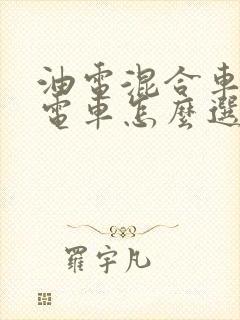 油電混合車
電車怎麼選
羅宇凡